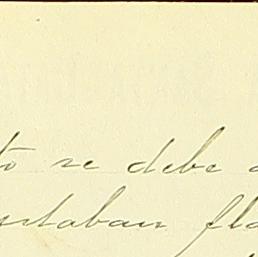 to se debe a
estaban fla